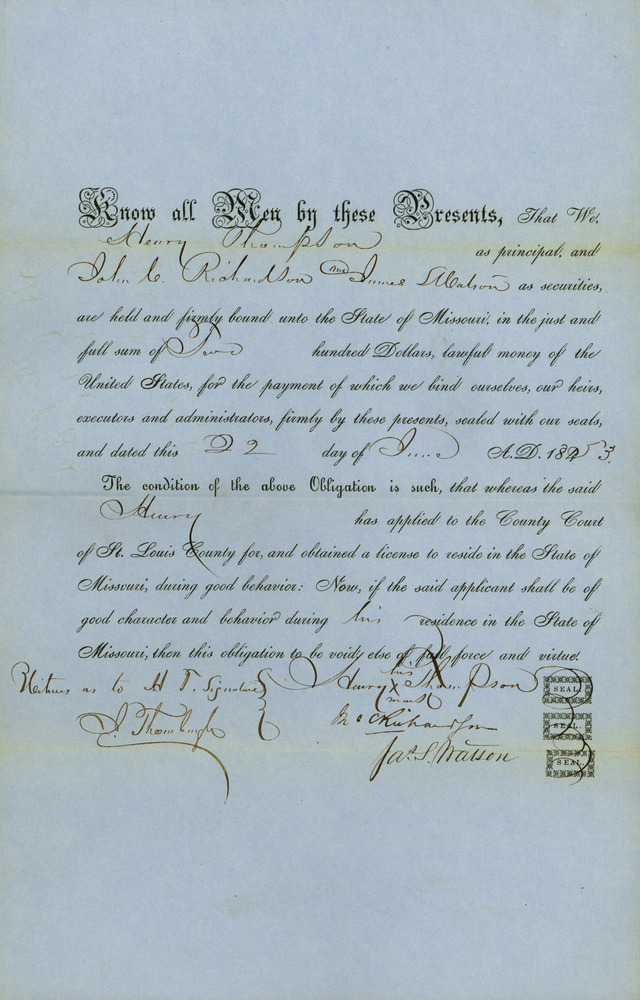 Know all Men by these Presents, That We,
Henry Thompson as principal, and
John C. Richardson and James S Watson as securities,
are held and firmly bound unto the State of Missouri, in the just and
full sum of Two hundred Dollars, lawful money of the
United States, for the payment of which we bind ourselves, our heirs,
executors and administrators, firmly by these presents, sealed with our seals,
and dated this 22 day of June A.D. 1853.
The condition of the above Obligation is such, that whereas the said
Henry has applied to the County Court
of St. Louis County for, and obtained a license to reside in the State of
Missouri, during good behavior: Now, if the said applicant shall be of
good character and behavior during his residence in the State of
Missouri, then this obligation to be void, else of full force and virtue.
Witness as to H T. Signature
Henry his X mark Thompson SEAL.
J. Thornburgh
Jno C Richardson SEAL.
Jas. S. Watson SEAL.